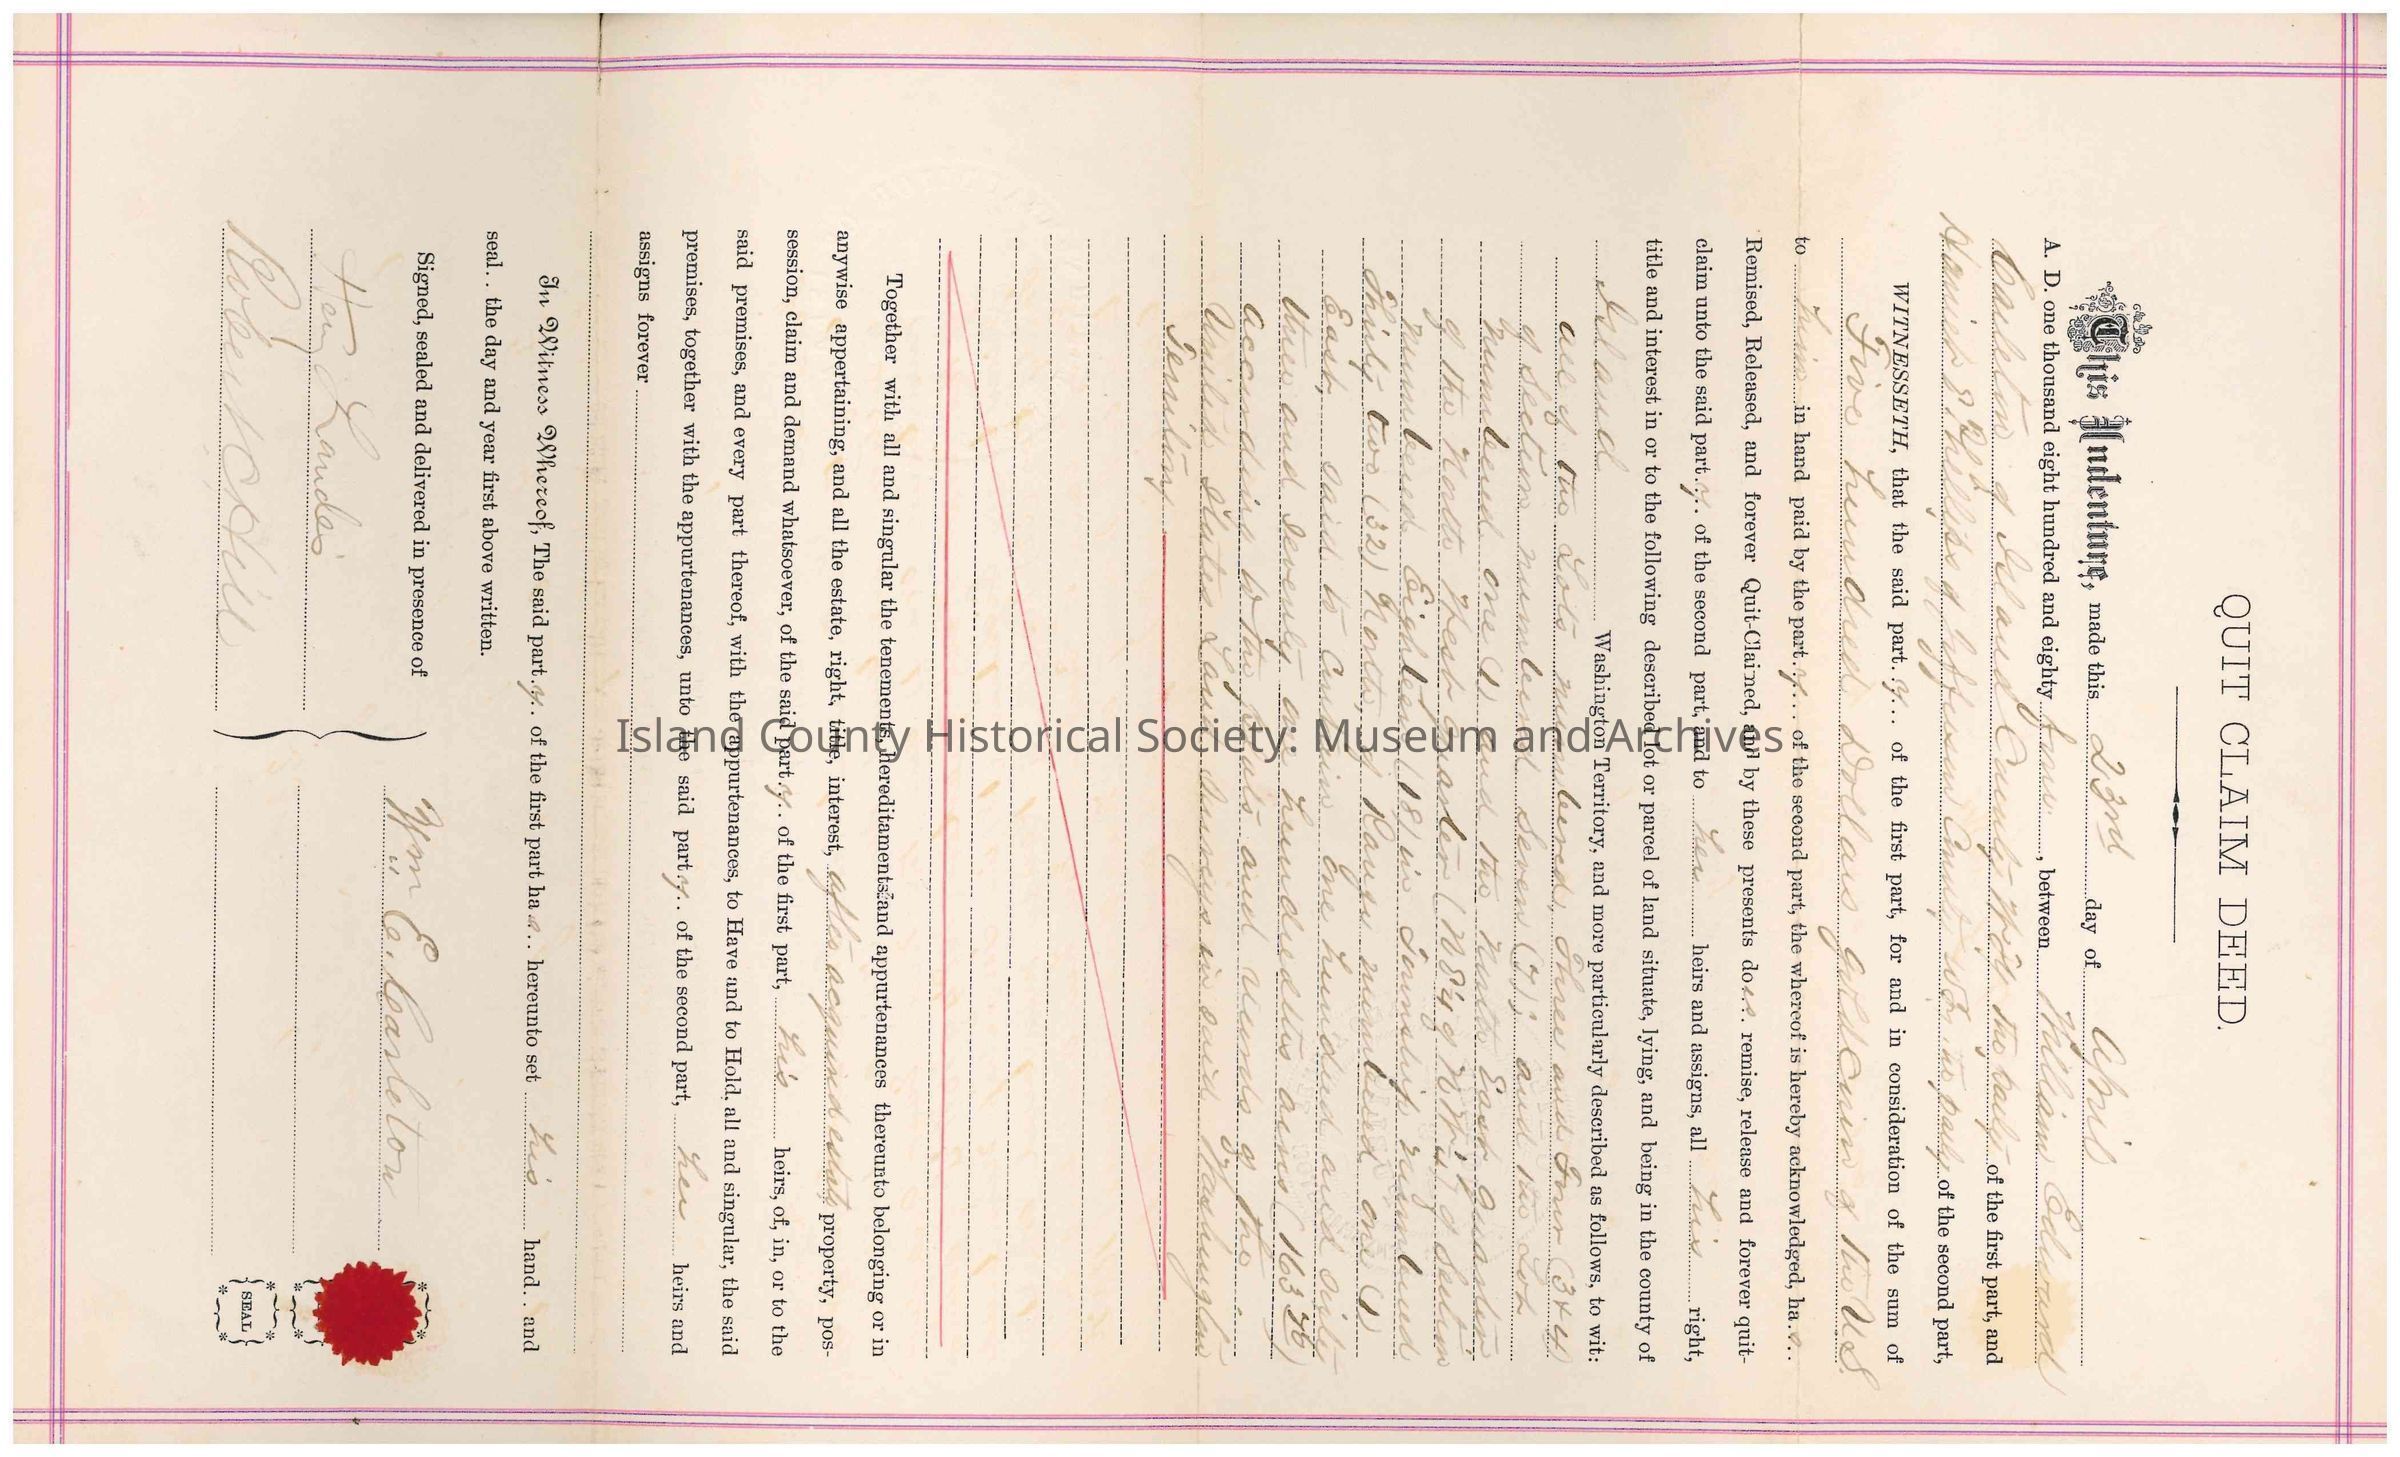 QUIT CLAIM DEED.
This Indenture, made this 23rd day of April
A. D. one thousand eight hundred and eighty four, between William Edmund
Carleton of Island County W.T. the party of the first part, and
Phillips of Jefferson County, W.T. the party of the second part,
WITNESSETH, that the said party of the first part, for and in consideration of the sum of
Five hundred Dollars gold coin of the U.S.
to him in hand paid by the party of the second part, the whereof is hereby acknowledged, has
Remised, Released, and forever Quit-Claimed, and by these presents does remise, release and forever quit-
claim unto the said party of the second part, and to her heirs and assigns, all his right,
title and interest in or to the following described lot or parcel of land situate, lying, and being in the county of
Island Washington Territory, and more particularly described as follows, to wit:
all of the Lots numbered, Three and Four (3 & 4)
of Section numbered Seven (7); and the Lot
numbered one (1) and the North East quarter
of the North West quarter (N.E.¼ of N.W.¼) of Section
numbered Eighteen (18) in Township numbered
Thirty two (32) North, of Range numbered one (1)
East, said to contain One hundred and sixty
three and seventy one hundredths acres (163
according to the plats and records of the
United States Land Surveys in said Washington
Territory
Together with all and singular the tenements, hereditaments and appurtenances thereunto belonging or in
anywise appertaining, and all the estate, right, title, interest, after acquired estate, property, pos-
session, claim and demand whatsoever, of the said party of the first part, his heirs, of, in, or to the
said premises, and every part thereof, with the appurtenances, to Have and to Hold, all and singular, the said
premises, together with the appurtenances, unto the said party of the second part, her heirs and
assigns forever
In Witness Whereof, The said party of the first part has hereunto set his hand and
seal the day and year first above written.
Signed, sealed and delivered in presence of
Wm. E. Carleton
Hen Landes
Robert C Hill
SEAL
Island County Historical Society: Museum and Archives